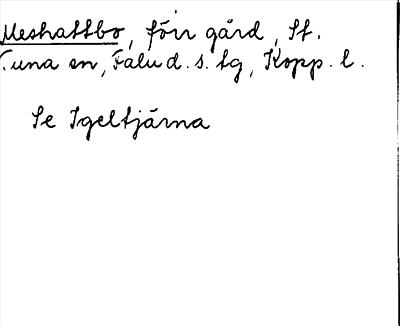 Meshattbo, förr gård, St.
Tuna sn, Falu d. s. tg, Kopp. l.
Se Igeltjärna